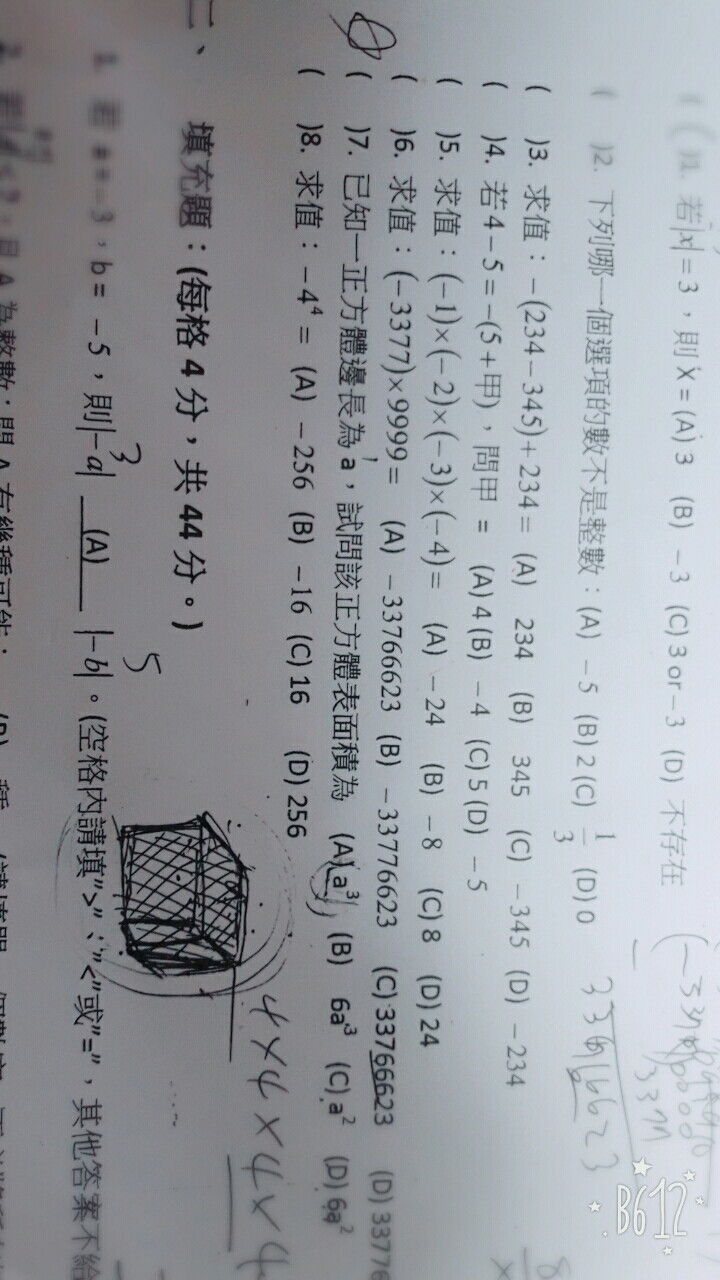 ( )1. 若|x| = 3，則 X = (A) 3 (B) －3 (C) 3 or－3 (D) 不存在
( )2. 下列哪一個選項的數不是整數：(A) －5 (B) 2 (C) 1/3 (D) 0
( )3. 求值：－(234－345)＋234 = (A) 234 (B) 345 (C) －345 (D) －234
( )4. 若 4－5 = －(5＋甲)，問甲 = (A) 4 (B) －4 (C) 5 (D) －5
( )5. 求值：(－1)×(－2)×(－3)×(－4) = (A) －24 (B) －8 (C) 8 (D) 24
( )6. 求值：(－3377)×9999 = (A) －33766623 (B) －33776623 (C) 33766623 (D) 33776
( )7. 已知一正方體邊長為 a，試問該正方體表面積為 (A) a³ (B) 6a³ (C) a² (D) 6a²
( )8. 求值：－4⁴ = (A) －256 (B) －16 (C) 16 (D) 256
4×4×4×4
二、 填充題：(每格 4 分，共 44 分。)
1. 若 a = －3，b = －5，則|－a| (A) |－b|。(空格內請填">"、"<"或"="，其他答案不給
3
5
B612